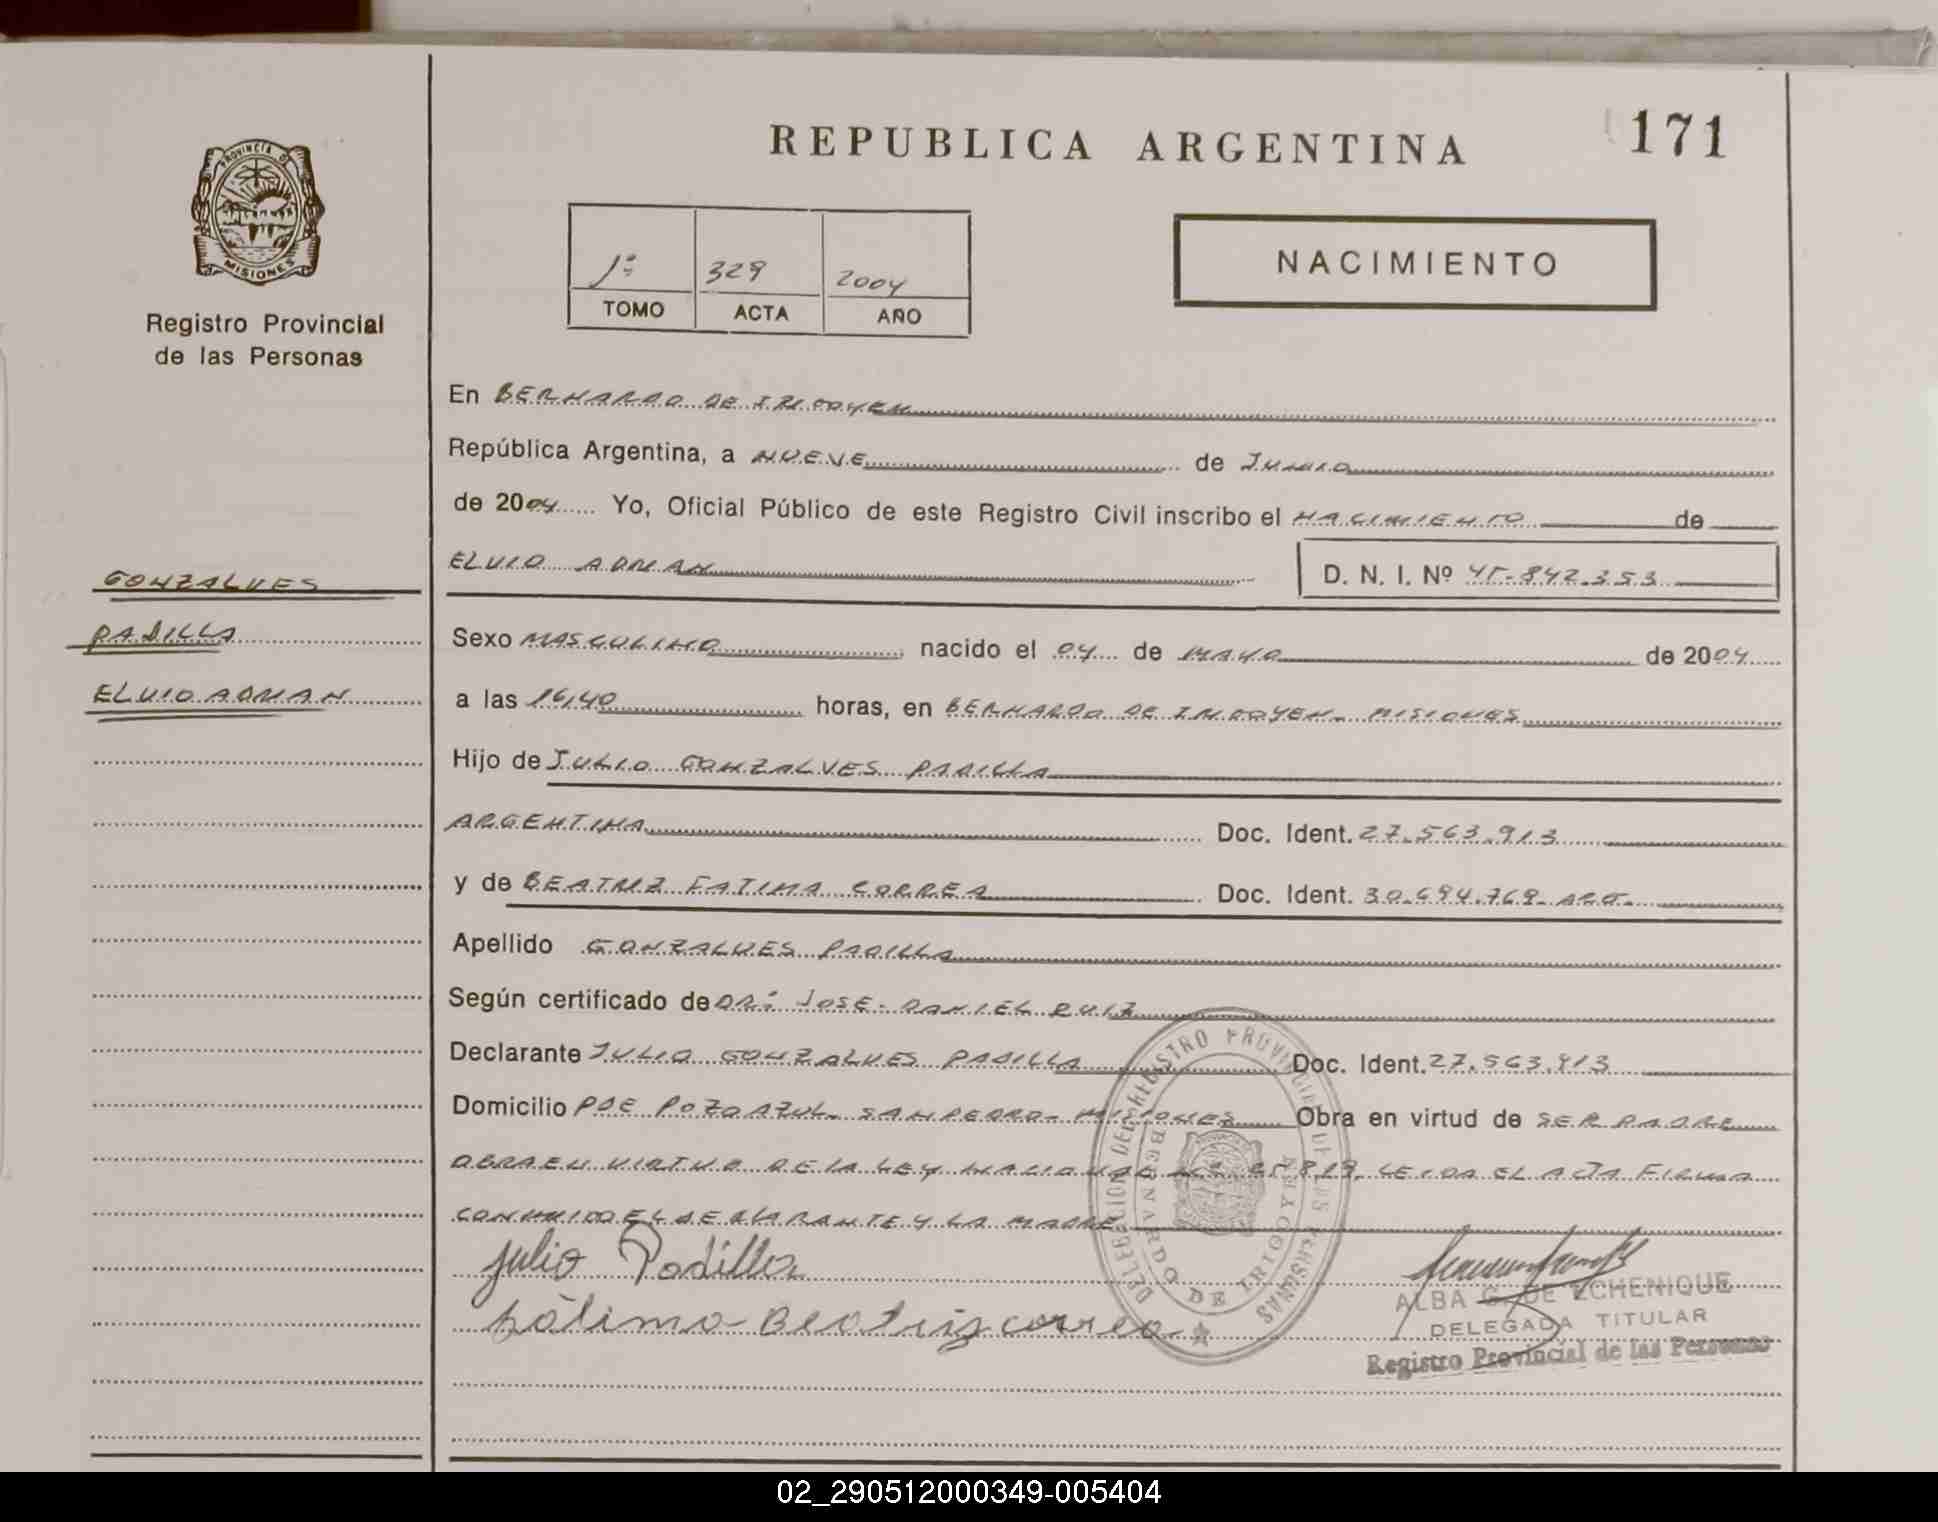 REPUBLICA ARGENTINA
171
PROVINCIA D
MISIONES
Registro Provincial
de las Personas
1º 329 2004
TOMO ACTA AÑO
NACIMIENTO
En BERNARDO DE IRIGOYEN
República Argentina, a NUEVE de JUNIO
de 2004 Yo, Oficial Público de este Registro Civil inscribo el NACIMIENTO de
ELVIO ADRIAN D. N. I. Nº 45-842.353
GONZALVES
PADILLA
ELVIO ADRIAN
Sexo MASCULINO nacido el 04 de MAYO de 2004
a las 16,40 horas, en BERNARDO DE IRIGOYEN- MISIONES
Hijo de JULIO GONZALVES PADILLA
ARGENTINA Doc. Ident. 27.563.913
y de BEATRIZ FATIMA CORREA Doc. Ident. 30.694.769- ARG-
Apellido GONZALVES PADILLA
Según certificado de DR: JOSE DANIEL RUIZ
Declarante JULIO GONZALVES PADILLA Doc. Ident. 27.563.913
Domicilio PJE POZO AZUL- SAN PEDRO- MISIONES Obra en virtud de SER PADRE
OBRA EN VIRTUD DE LA LEY NACIONAL 25.819. LEIDA EL ACTA FIRMA
CONMIGO EL DECLARANTE Y LA MADRE
Julio Padilla
Fatima Beatriz correa
DELEGACION DEL REGISTRO PROVINCIAL DE LAS PERSONAS
BERNARDO DE IRIGOYEN
ALBA G. DE ECHENIQUE
DELEGADA TITULAR
Registro Provincial de las Personas
02_290512000349-005404